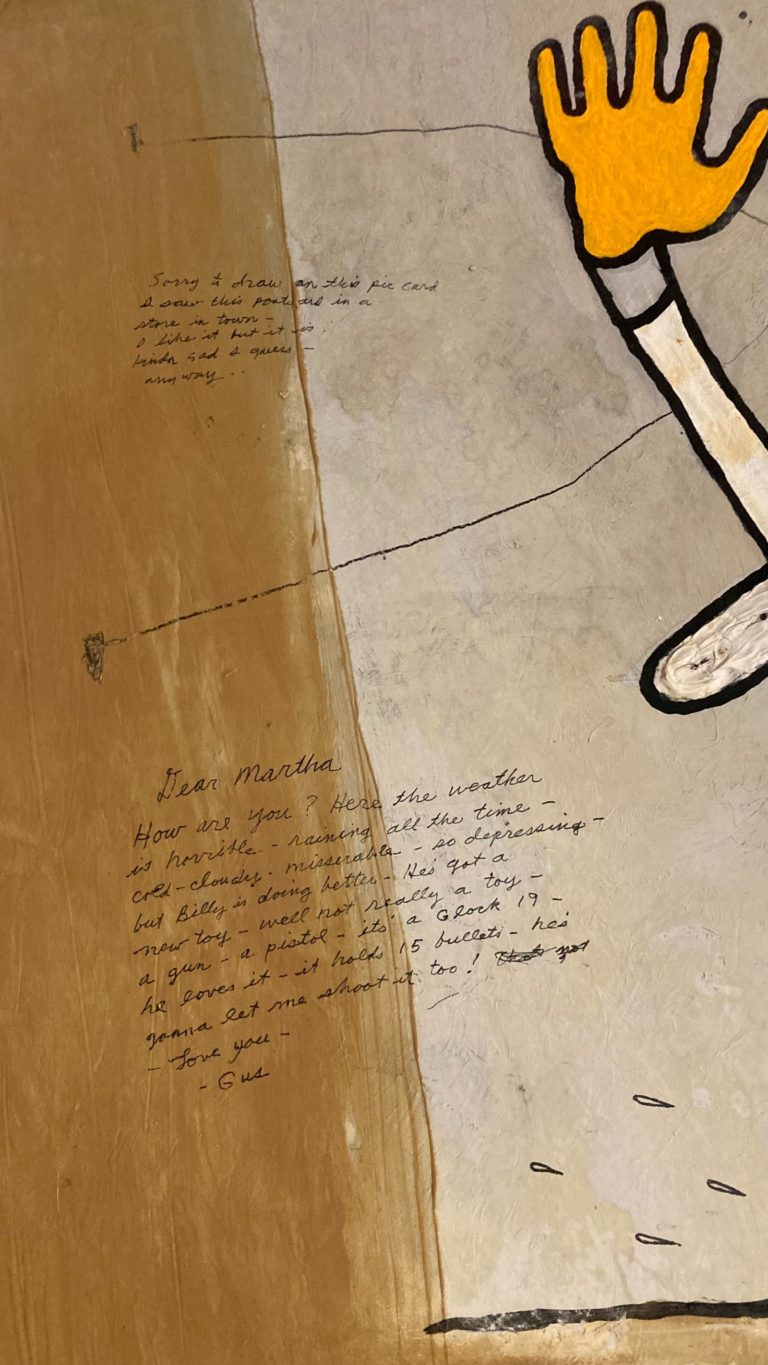 Sorry to draw on this pic card
I saw this postcard in a
store in town -
I like it but it is
kinda sad I guess -
anyway . .
Dear Martha
How are you? Here the weather
is horrible - raining all the time -
cold - cloudy - misserable - so depressing -
but Billy is doing better - He's got a
new toy - well not really a toy -
a gun - a pistol - its' a Glock 19 -
he loves it - it holds 15 bullets - he's
gonna let me shoot it too!
- Love you -
- Gus